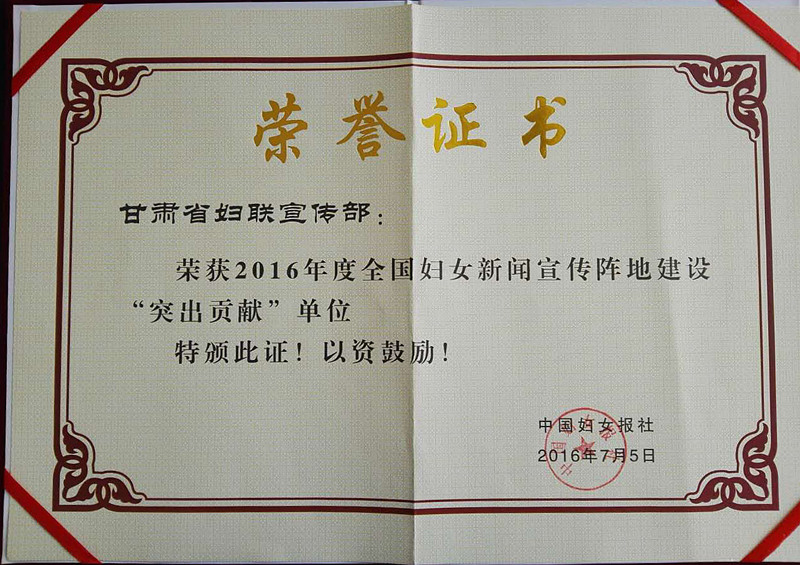 荣誉证书
甘肃省妇联宣传部：
荣获2016年度全国妇女新闻宣传阵地建设
“突出贡献”单位
特颁此证！以资鼓励！
中国妇女报社
2016年7月5日